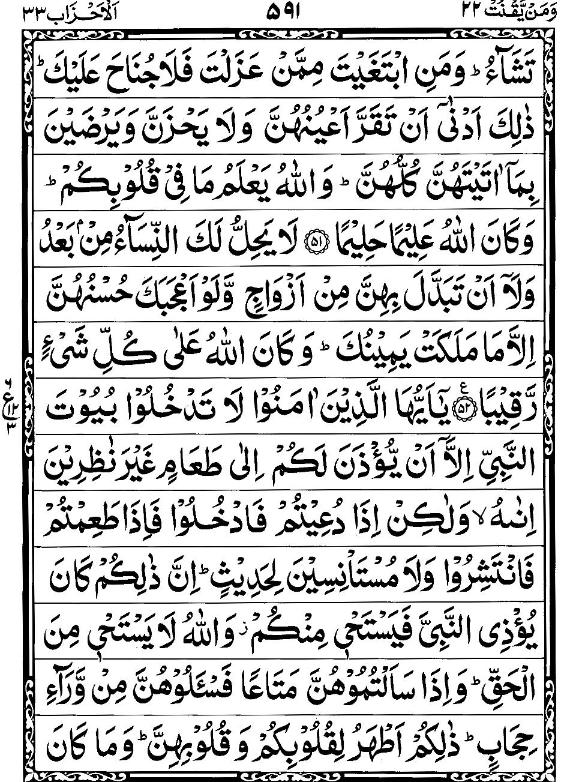 وَمَنْ يَّقْنُتْ ٢٢ ٥٩١ اَلْاَحْزَاب ٣٣
تَشَآءُ ؕ وَمَنِ ابْتَغَيْتَ مِمَّنْ عَزَلْتَ فَلَا جُنَاحَ عَلَيْكَ ؕ
ذٰلِكَ اَدْنٰۤى اَنْ تَقَرَّ اَعْيُنُهُنَّ وَلَا يَحْزَنَّ وَيَرْضَيْنَ
بِمَاۤ اٰتَيْتَهُنَّ كُلُّهُنَّ ؕ وَاللّٰهُ يَعْلَمُ مَا فِىْ قُلُوْبِكُمْ ؕ
وَكَانَ اللّٰهُ عَلِيْمًا حَلِيْمًا ۝٥١ لَا يَحِلُّ لَكَ النِّسَآءُ مِنْۢ بَعْدُ
وَلَاۤ اَنْ تَبَدَّلَ بِهِنَّ مِنْ اَزْوَاجٍ وَّلَوْ اَعْجَبَكَ حُسْنُهُنَّ
اِلَّا مَا مَلَكَتْ يَمِيْنُكَ ؕ وَكَانَ اللّٰهُ عَلٰى كُلِّ شَىْءٍ
رَّقِيْبًا ۝٥٢ۧ يٰۤاَيُّهَا الَّذِيْنَ اٰمَنُوْا لَا تَدْخُلُوْا بُيُوْتَ
٦ ع ١٢ ٣
النَّبِىِّ اِلَّاۤ اَنْ يُّؤْذَنَ لَكُمْ اِلٰى طَعَامٍ غَيْرَ نٰظِرِيْنَ
اِنٰىهُ ۙ وَلٰكِنْ اِذَا دُعِيْتُمْ فَادْخُلُوْا فَاِذَا طَعِمْتُمْ
فَانْتَشِرُوْا وَلَا مُسْتَاْنِسِيْنَ لِحَدِيْثٍ ؕ اِنَّ ذٰلِكُمْ كَانَ
يُؤْذِى النَّبِىَّ فَيَسْتَحْىٖ مِنْكُمْ ز وَاللّٰهُ لَا يَسْتَحْىٖ مِنَ
الْحَقِّ ؕ وَاِذَا سَاَلْتُمُوْهُنَّ مَتَاعًا فَسْئَلُوْهُنَّ مِنْ وَّرَآءِ
حِجَابٍ ؕ ذٰلِكُمْ اَطْهَرُ لِقُلُوْبِكُمْ وَقُلُوْبِهِنَّ ؕ وَمَا كَانَ